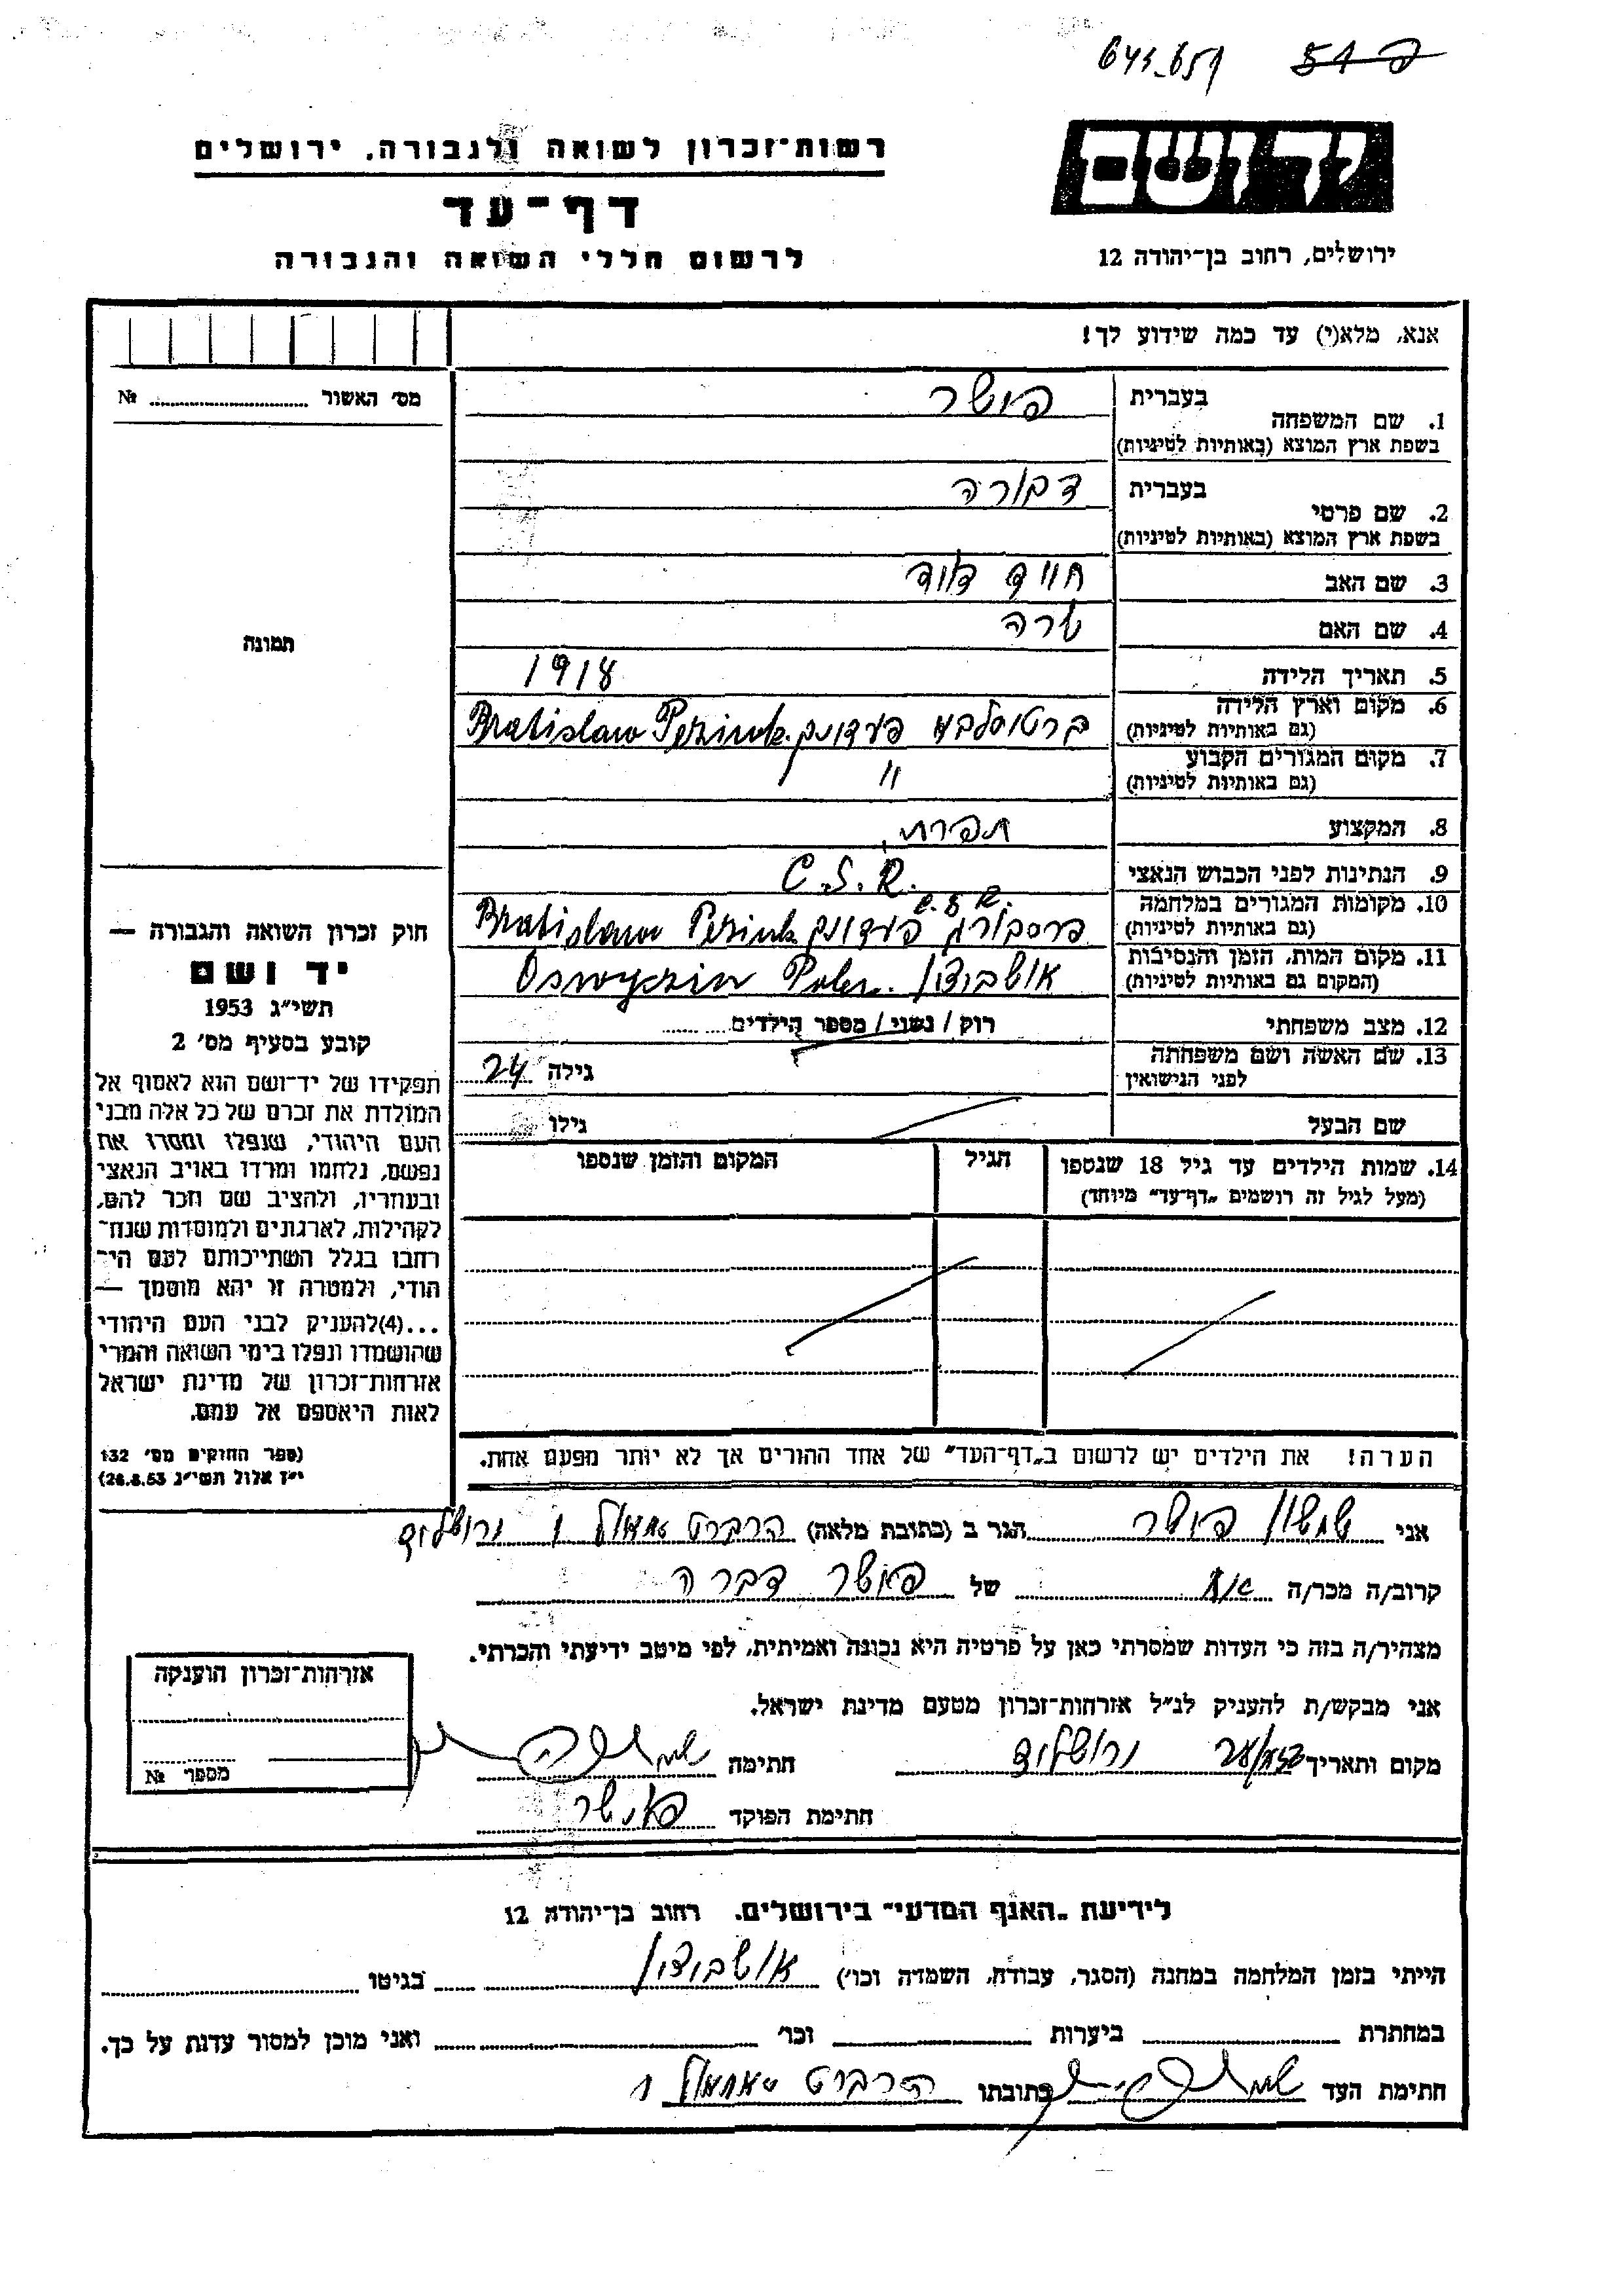 643-651 פ 51
רשות־זכרון לשואה ולגבורה, ירושלים
יד ושם
דף־עד
לרשום חללי השואה והגבורה
ירושלים, רחוב בן־יהודה 12
אנא, מלא(י) עד כמה שידוע לך!
מס׳ האשור № 
1. שם המשפחה בעברית פישר
בשפת ארץ המוצא (באותיות לטיניות)
2. שם פרטי בעברית דבורה
בשפת ארץ המוצא (באותיות לטיניות)
3. שם האב חיים דוד
4. שם האם שרה
תמונה
5. תאריך הלידה 1918
6. מקום וארץ הלידה
(גם באותיות לטיניות) Bratislawa Pezinok
7. מקום המגורים הקבוע
(גם באותיות לטיניות) "
8. המקצוע תפרת
9. הנתינות לפני הכבוש הנאצי C.S.R.
10. מקומות המגורים במלחמה C.S.R.
(גם באותיות לטיניות) פרסבורג Bratislawa Pezinok
11. מקום המות, הזמן והנסיבות
(המקום גם באותיות לטיניות) אושביצין Polen
12. מצב משפחתי רוק / נשוי / מספר הילדים
13. שם האשה ושם משפחתה
לפני הנישואין גילה 24
שם הבעל גילו
14. שמות הילדים עד גיל 18 שנספו
(מעל לגיל זה רושמים „דף־עד" מיוחד)
הגיל
המקום והזמן שנספו
הערה! את הילדים יש לרשום ב„דף־העד" של אחד ההורים אך לא יותר מפעם אחת.
חוק זכרון השואה והגבורה —
יד ושם
תשי״ג 1953
קובע בסעיף מס׳ 2
תפקידו של יד־ושם הוא לאסוף אל
המולדת את זכרם של כל אלה מבני
העם היהודי, שנפלו ומסרו את
נפשם, נלחמו ומרדו באויב הנאצי
ובעוזריו, ולהציב שם וזכר להם,
לקהילות, לארגונים ולמוסדות שנח־
רבו בגלל השתייכותם לעם הי־
הודי, ולמטרה זו יהא מוסמך —
...(4)להעניק לבני העם היהודי
שהושמדו ונפלו בימי השואה והמרי
אזרחות־זכרון של מדינת ישראל
לאות היאספם אל עמם.
(ספר החוקים מס׳ 132
י״ז אלול תשי״ג 28.8.53)
אני שמשון פישר הגר ב (כתובת מלאה) הרברט סמואל 1 ירושלים
קרוב/ה מכר/ה אח של פישר דברה
מצהיר/ה בזה כי העדות שמסרתי כאן על פרטיה היא נכונה ואמיתית, לפי מיטב ידיעתי והכרתי.
אני מבקש/ת להעניק לנ״ל אזרחות־זכרון מטעם מדינת ישראל.
מקום ותאריך ירושלים חתימה
חתימת הפוקד פישר
אזרחות־זכרון הוענקה
מספר №
לידיעת „האגף המדעי" בירושלים. רחוב בן־יהודה 12
הייתי בזמן המלחמה במחנה (הסגר, עבודה, השמדה וכו׳) אושביצין בגיטו
במחתרת ביערות וכו׳ ואני מוכן למסור עדות על כך.
חתימת העד כתובתו הרברט סמואל 1